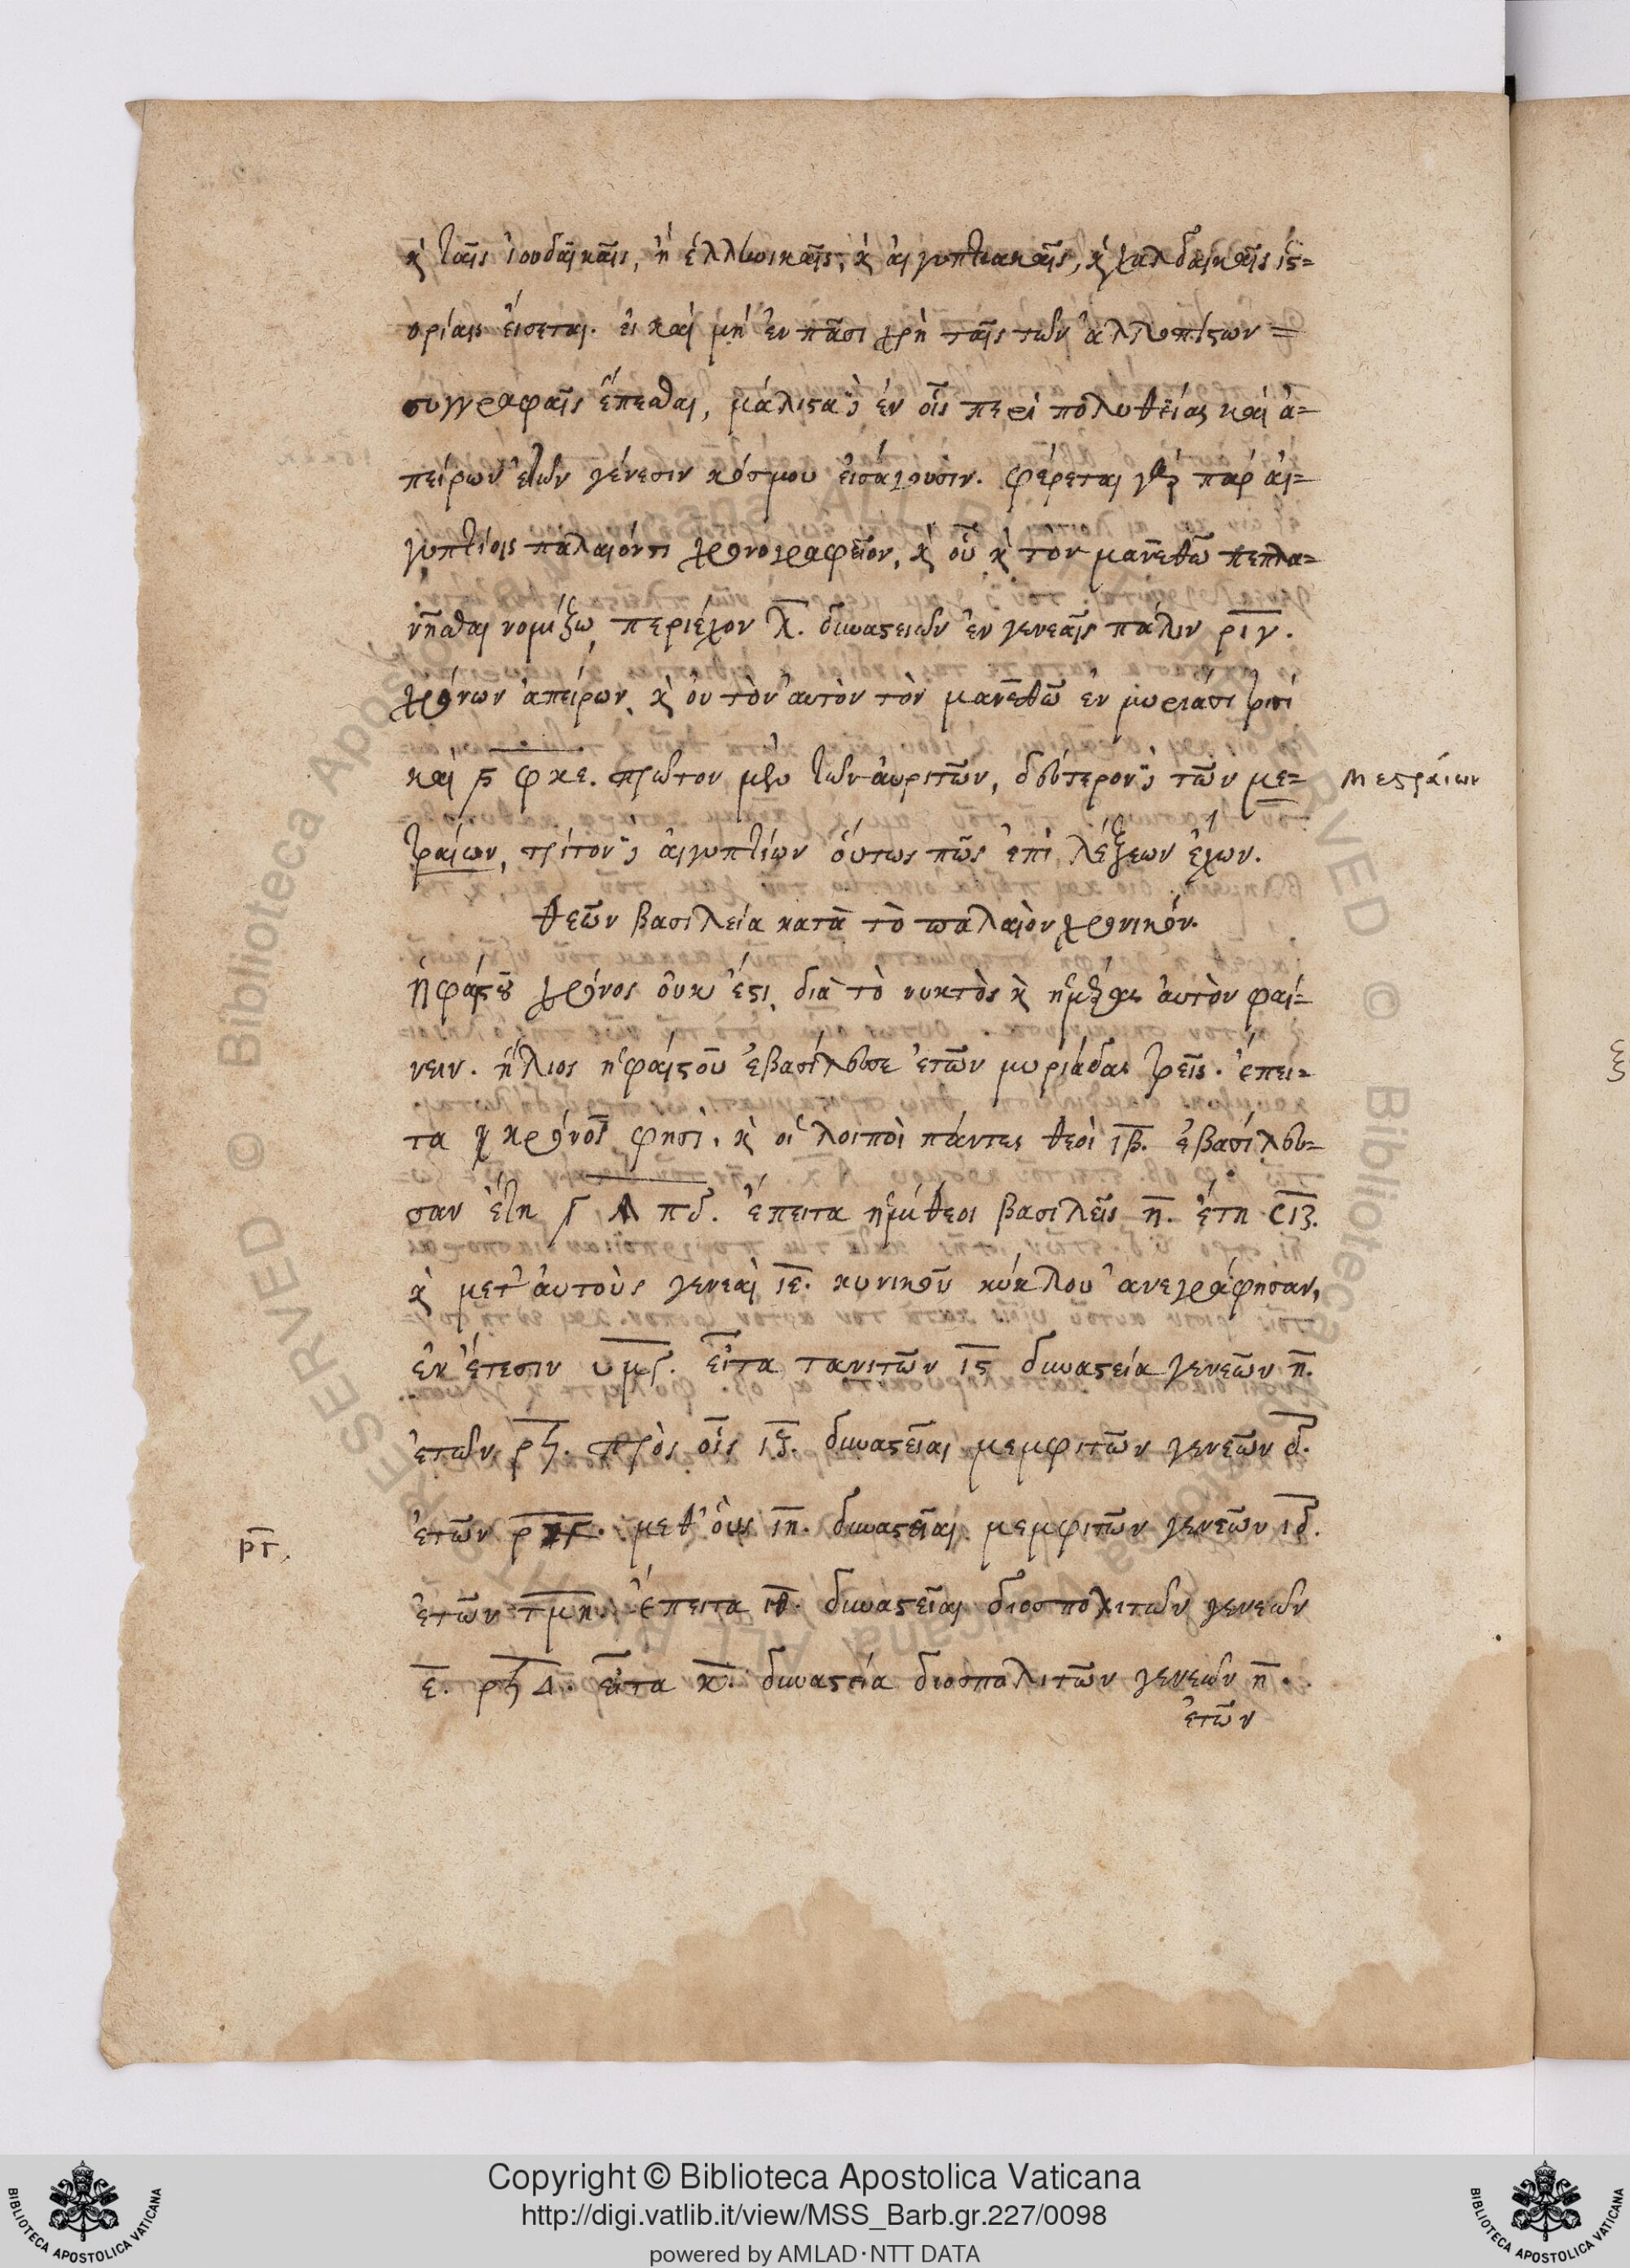 κὶ ταῖς ἰουδαϊκαῖς, ἢ ἑλλωικαῖς, κὶ αἰγυπτιακαῖς, κὶ χαλδαϊκαῖς ἱς=
ορίαις εἴσεται. εἰ καὶ μὴ ἐν πᾶσι χρὴ ταῖς τῶν ἀλλοπίστων =
συγγραφαῖς ἕπεσθαι, μάλιστα δὲ ἐν οἷς περὶ πολυθεΐας καὶ ἀ=
πείρων ἐτῶν γένεσιν κόσμου εἰσάγουσιν. φέρεται γὰρ παρ αἰ=
γυπτίοις παλαιόντι χρονογραφεῖον, κὶ οὗ κὶ τὸν μανεθῶ πεπλα=
νῆσθαι νομίζω, περιέχον λ. δυναστειῶν ἐν γενεαῖς πάλιν ριγ.
χρόνων ἀπείρων, κὶ οὐ τὸν αὐτὸν τὸν μανεθῶ ἐν μυριάσι τρισὶ
καὶ ϛ φκε. πρῶτον μὲν τῶν ἀυριτῶν, δεύτερον δὲ τῶν με= μεστραίων
τραίων, τρίτον δὲ αἰγυπτίων οὕτως πῶς ἐπὶ λέξεων ἔχων.
θεῶν βασιλεία κατὰ τὸ παλαιὸν χρονικόν.
ἡφάιστου χρόνος οὐκ ἔστι, διὰ τὸ νυκτὸς κὶ ἡμέρας αὐτὸν φαί=
νειν. ἥλιος ἡφαίστου ἐβασίλευσε ἐτῶν μυριάδας τρεῖς. ἔπει=
τα κρόνος φησὶ, κὶ οἱ λοιποὶ πάντες θεοὶ ιβ. ἐβασίλευ=
σαν ἔτη γ πδ. ἔπειτα ἡμίθεοι βασιλεῖς η. ἔτη σιζ.
κὶ μετ' αὐτοὺς γενεαὶ ιε. κυνικοῦ κύκλου ἀνεγράφησαν,
ἐν ἔτεσιν υμγ. εἶτα τανιτῶν ιϛ δυναστεία γενεῶν η.
ἐτῶν ρϟ. πρὸς οἷς ιζ. δυναστεῖαι μεμφιτῶν γενεῶν δ.
ργ. ἐτῶν ρ. μεθ' οὓς ιη. δυναστεῖαι μεμφιτῶν γενεῶν ιδ.
ἐτῶν τμη. ἔπειτα ιθ. δυναστεῖαι διοσπολιτῶν γενεῶν
ε. ρϟΔ. εἶτα κ. δυναστεία διοσπολιτῶν γενεῶν η.
ἐτῶν
Copyright © Biblioteca Apostolica Vaticana
http://digi.vatlib.it/view/MSS_Barb.gr.227/0098
powered by AMLAD·NTT DATA